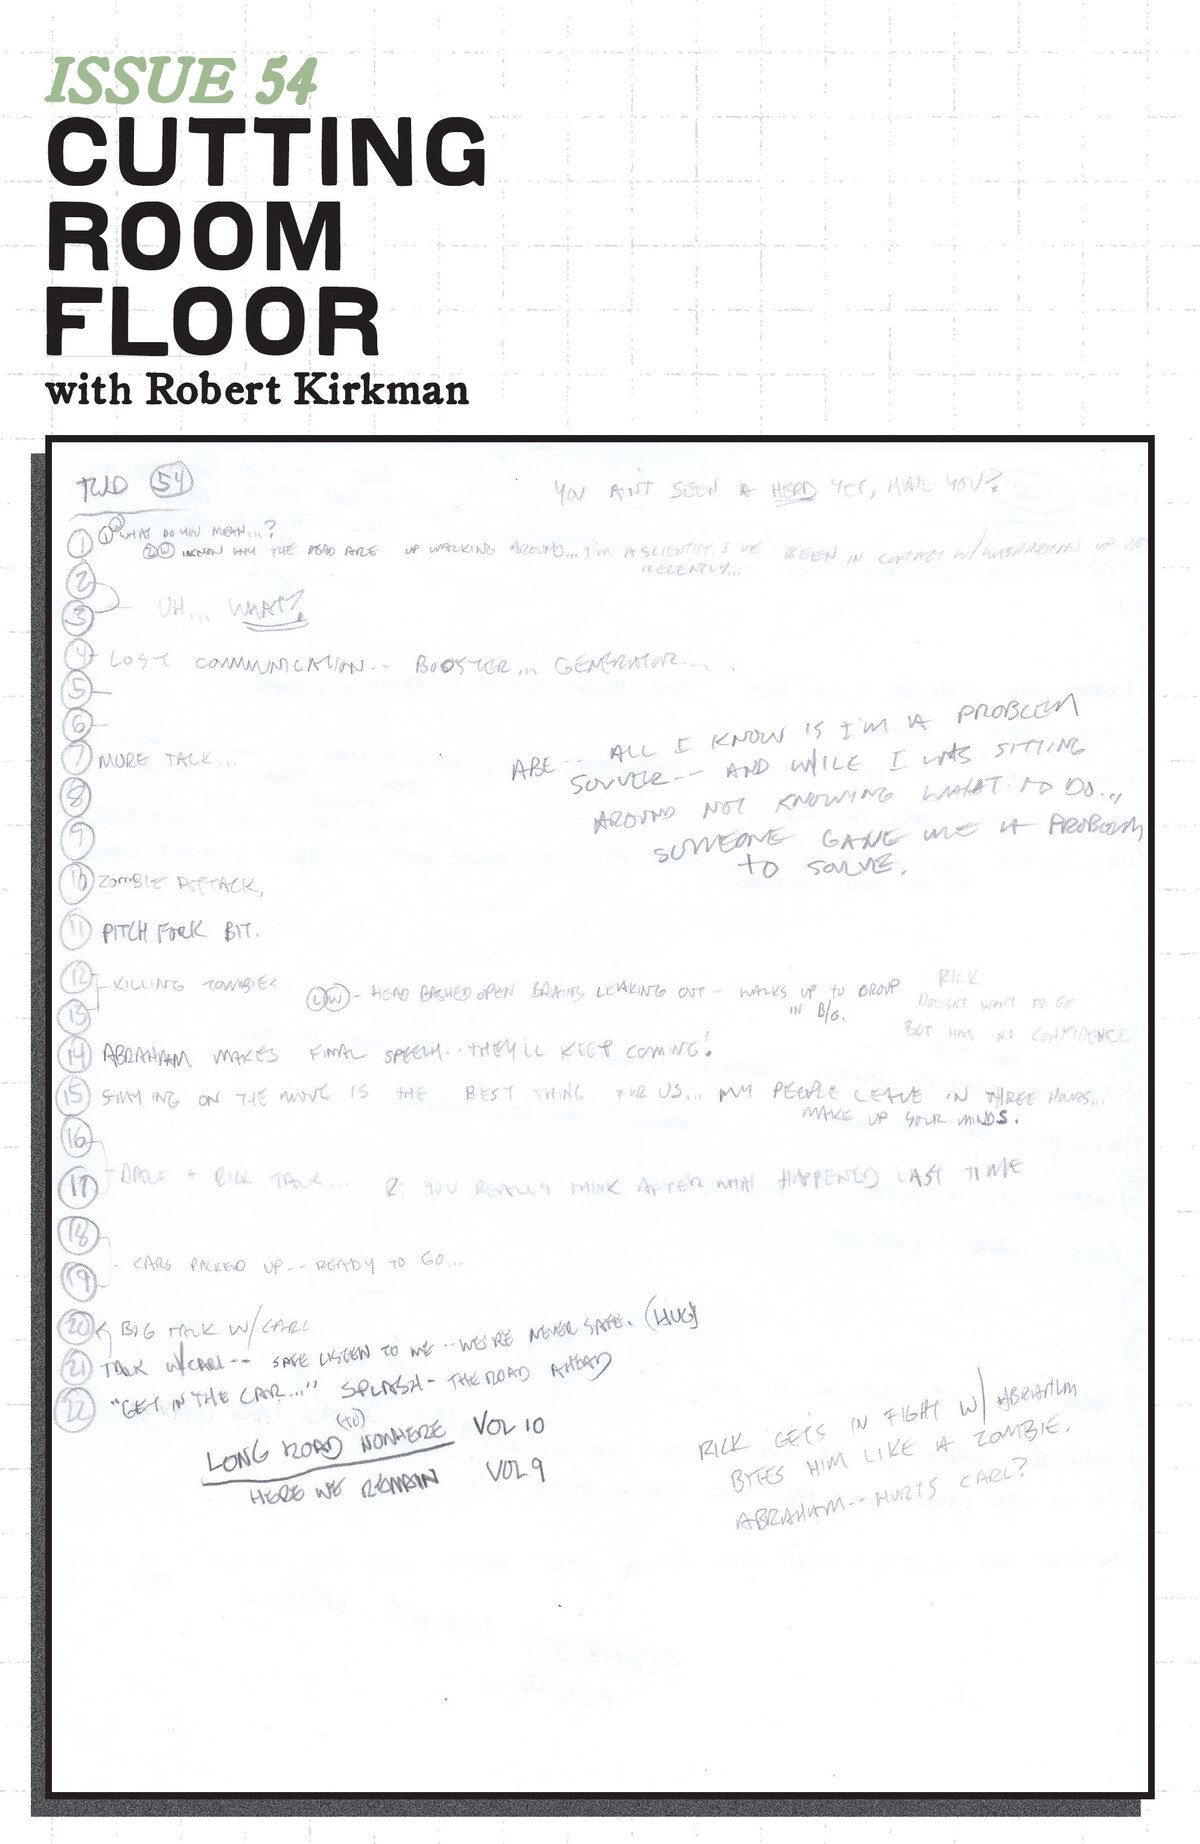 ISSUE 54
CUTTING
ROOM
FLOOR
with Robert Kirkman
TWD 54
YOU AIN'T SEEN A HERD YET, HAVE YOU?
1 1 WHAT DO YOU MEAN...?
2 I KNOW WHY THE DEAD ARE UP WALKING AROUND... I'M A SCIENTIST. I'VE BEEN IN CONTACT W/WASHINGTON UP
RECENTLY...
2
3 UH... WHAT?
4 LOST COMMUNICATION-- BOOSTER... GENERATOR...
5
6
7 MORE TALK...
ABE-- ALL I KNOW IS I'M A PROBLEM
SOLVER-- AND WHILE I WAS SITTING
AROUND NOT KNOWING WHAT TO DO...
SOMEONE GAVE ME A PROBLEM
TO SOLVE.
8
9
10 ZOMBIE ATTACK.
11 PITCH FORK BIT.
12 KILLING ZOMBIES
- HEAD BASHED OPEN BRAINS LEAKING OUT-- WALKS UP TO GROUP
IN B/G.
RICK
DOESN'T WANT TO GO
BUT HAS NO CONFIDENCE
13
14 ABRAHAM MAKES FINAL SPEECH-- THEY'LL KEEP COMING!
15 STAYING ON THE MOVE IS THE BEST THING FOR US... MY PEOPLE LEAVE IN THREE HOURS...
MAKE UP YOUR MINDS.
16
17 DALE + RICK TALK... R: YOU REALLY THINK AFTER WHAT HAPPENED LAST TIME
18
19 CARS PACKED UP-- READY TO GO...
20 BIG TALK W/CARL
21 TALK W/CARL-- SAFE LISTEN TO ME-- WE'RE NEVER SAFE. (HUG)
22 "GET IN THE CAR..." SPLASH - THE ROAD AHEAD
LONG ROAD (TO) NOWHERE VOL 10
HERE WE REMAIN VOL 9
RICK GETS IN FIGHT W/ ABRAHAM
BITES HIM LIKE A ZOMBIE.
ABRAHAM-- HURTS CARL?